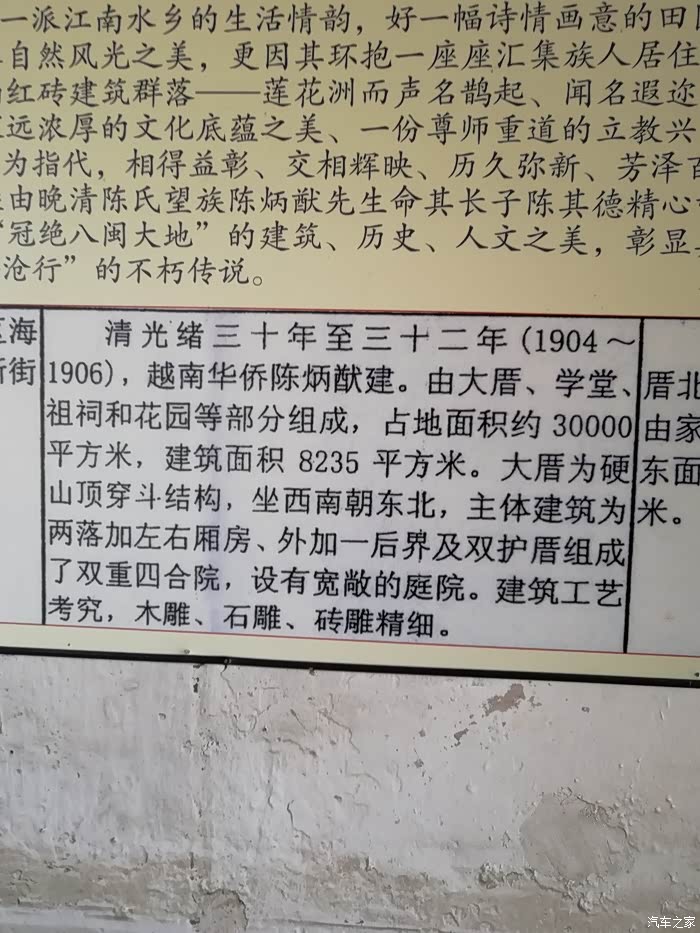 一派江南水乡的生活情韵，好一幅诗情画意的田
自然风光之美，更因其环抱一座座汇集族人居住
红砖建筑群落——莲花洲而声名鹊起、闻名遐迩
远浓厚的文化底蕴之美、一份尊师重道的立教兴
为指代，相得益彰、交相辉映、历久弥新、芳泽百
由晚清陈氏望族陈炳猷先生命其长子陈其德精心
“冠绝八闽大地”的建筑、历史、人文之美，彰显
沧行”的不朽传说。
区海
新街
清光绪三十年至三十二年(1904～
1906)，越南华侨陈炳猷建。由大厝、学堂、
祖祠和花园等部分组成，占地面积约30000
平方米，建筑面积 8235 平方米。大厝为硬
山顶穿斗结构，坐西南朝东北，主体建筑为
两落加左右厢房、外加一后界及双护厝组成
了双重四合院，设有宽敞的庭院。建筑工艺
考究，木雕、石雕、砖雕精细。
厝北
由家
东面
米。
汽车之家